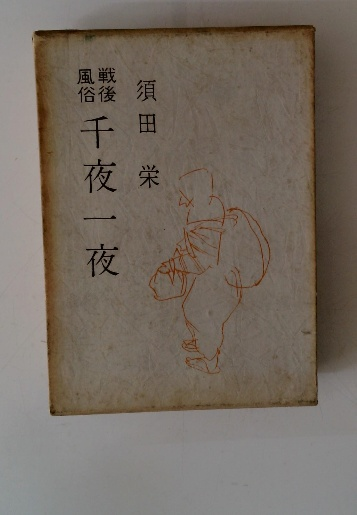 須田栄
戦後
風俗
千夜一夜